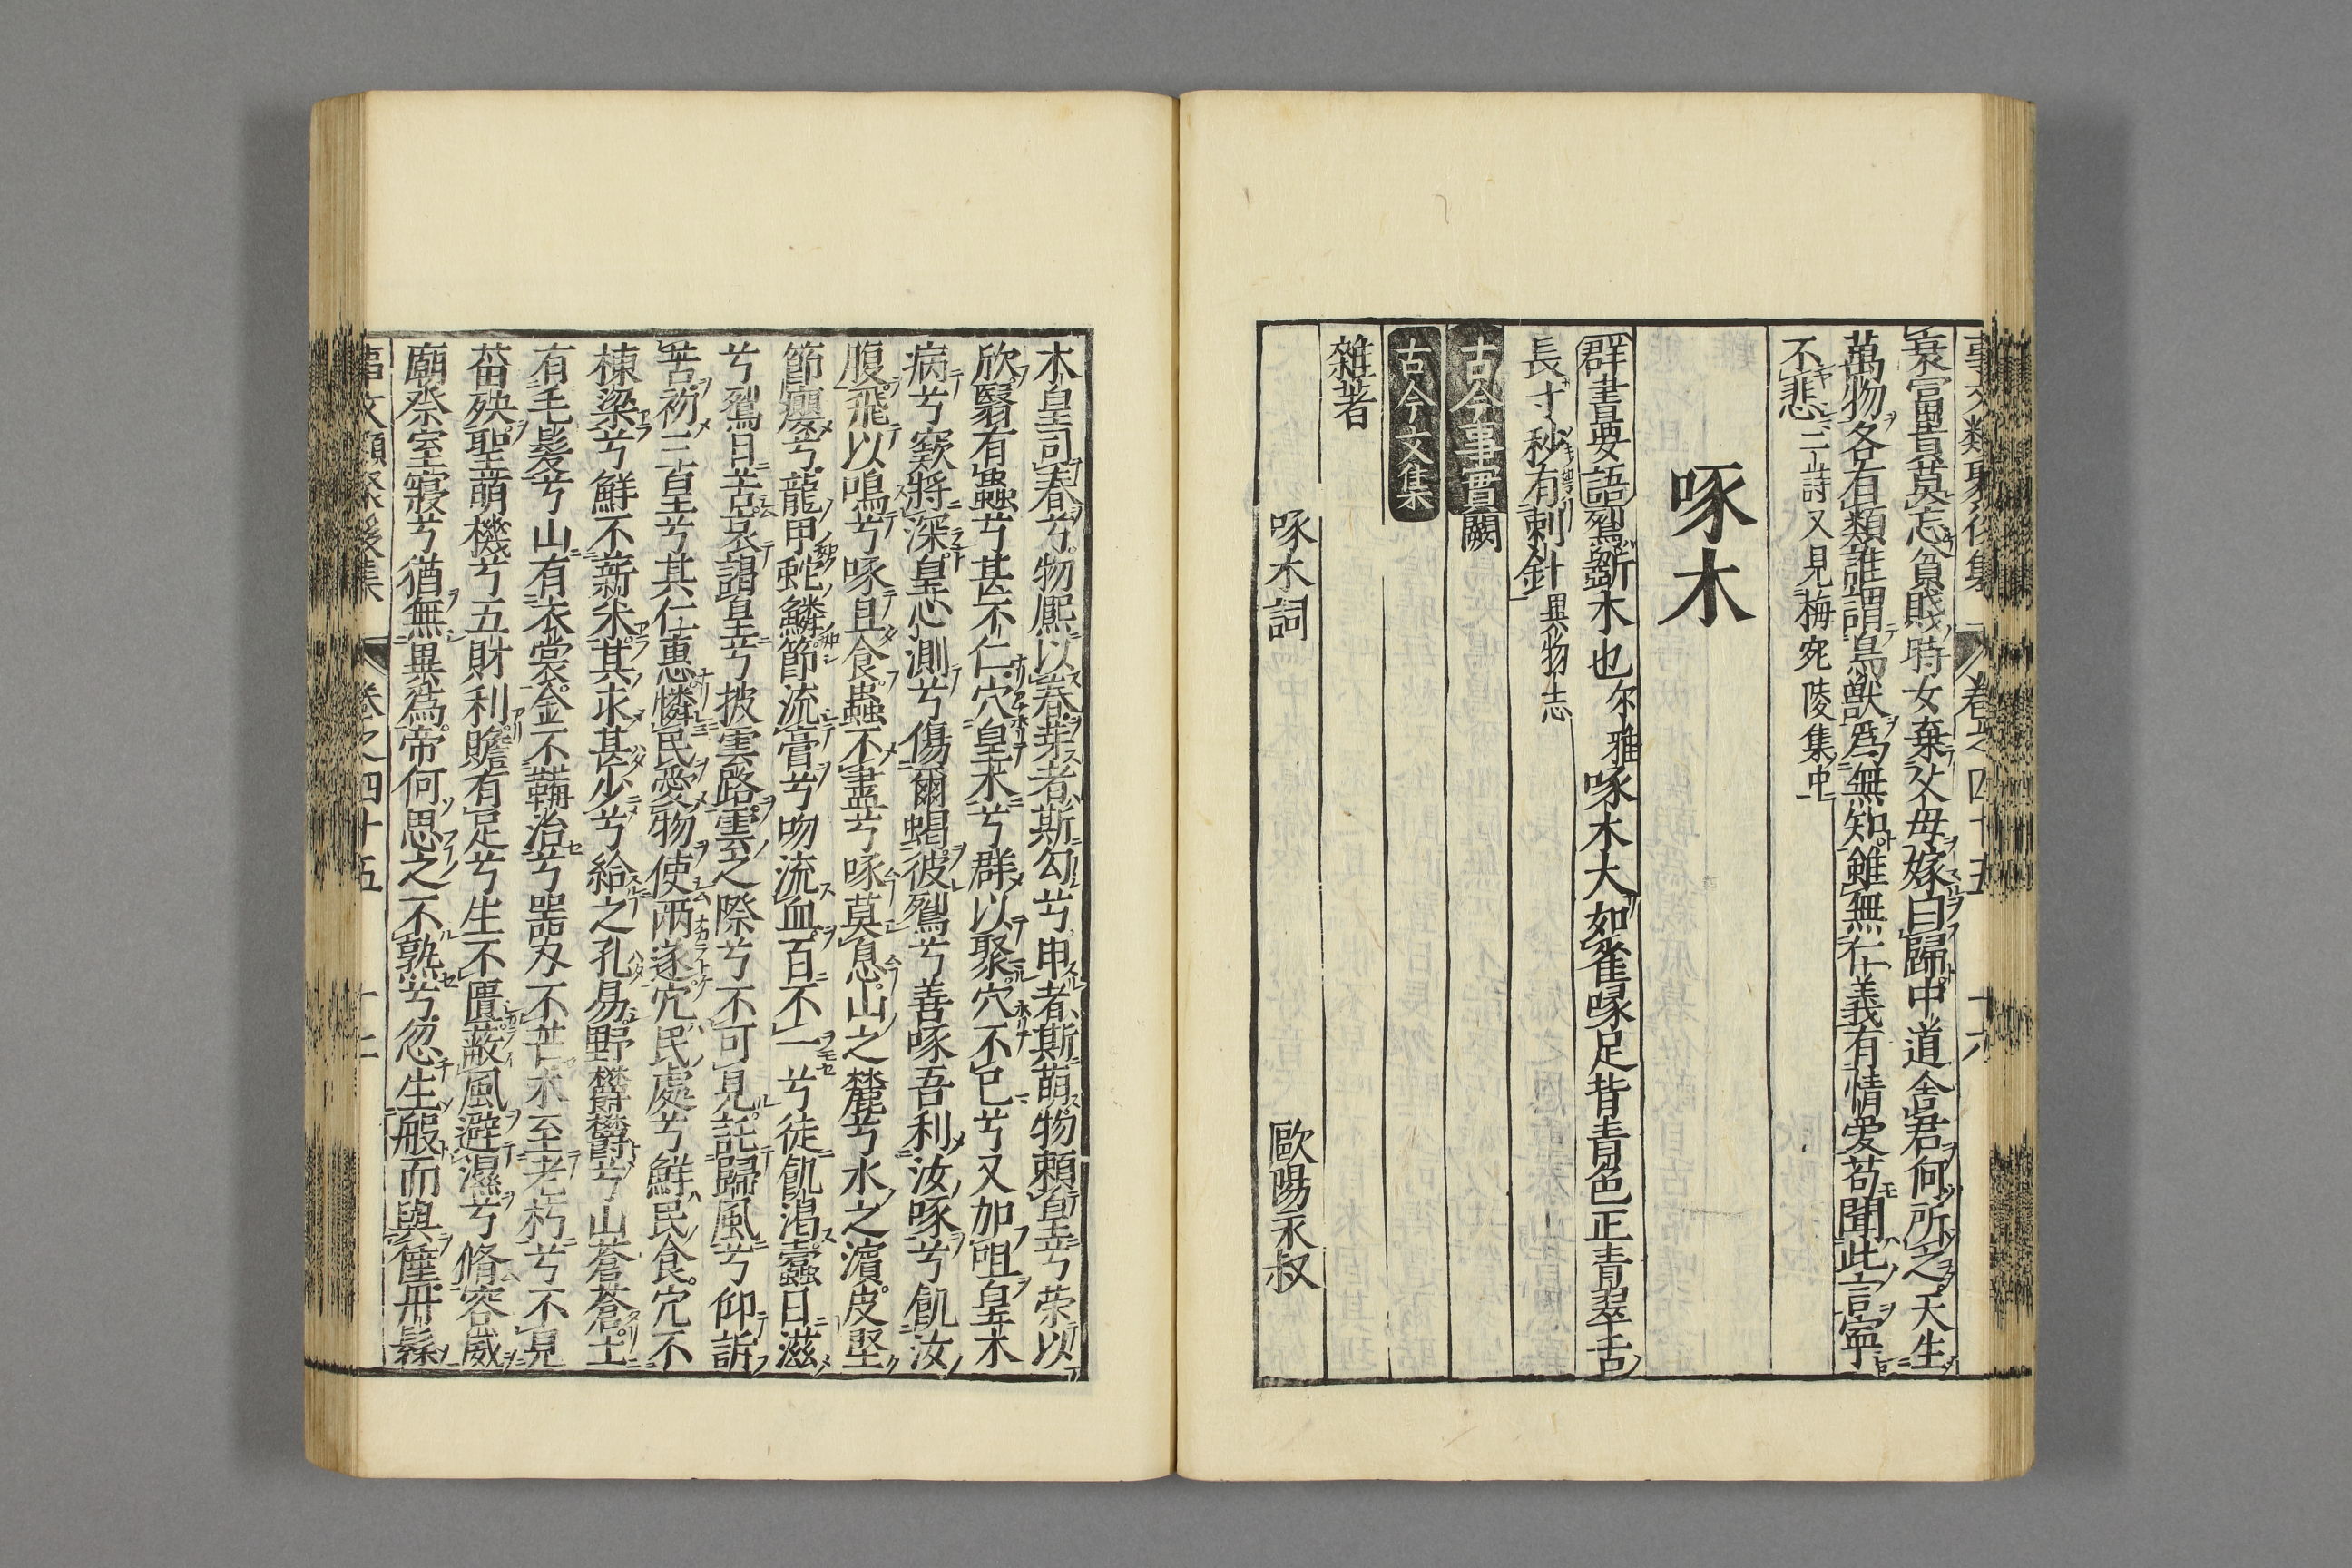 事文類聚後集 卷之四十五 十六
衰富貴莫忘貧賤時女棄父母嫁自歸中道舍君何所之天生
萬物各有類誰謂鳥獸爲無知雖無仁義有情愛苟聞此言寧
不悲 二詩又見梅宛陵集中
啄木
群書要語 鴷斲木也 尔雅 啄木大如雀喙足皆青色正青翠舌
長寸秒有刺針 異物志
古今事實 闕
古今文集
雜著
啄木詞 歐陽永叔
木皇司春兮物熈以春柴者斯勾兮甲者斯萌物頼皇兮荣以
欣翳有蟲兮甚不仁穴皇木兮群以聚穴不已兮又加咀皇木
病兮窾將深皇心測兮傷爾蝎彼鴷兮善啄吾利汝啄兮飢汝
腹飛以鳴兮啄且食蟲不盡兮啄莫息山之麓兮水之濵皮堅
節癭兮龍甲蛇鱗節流膏兮吻流血百不一兮徒飢渇蠹日滋
兮鴷日苦哀謁皇兮披雲路雲之際兮不可見託歸風兮仰訴
苦初三皇兮其仁惠憐民愛物使兩遂穴民處兮鮮民食穴不
棟梁兮鮮不薪米其求甚少兮給之孔易野欝欝兮山蒼蒼土
有毛髮兮山有衣裳金不鞴治兮噐刄不芒木至老朽兮不見
菑殃聖萌機兮五財利贍有足兮生不匱蔽風避濕兮脩容威
廟祭室寢兮猶無異為帝何思之不熟兮忽生般而與倕丹髹
事文類聚後集 卷之四十五